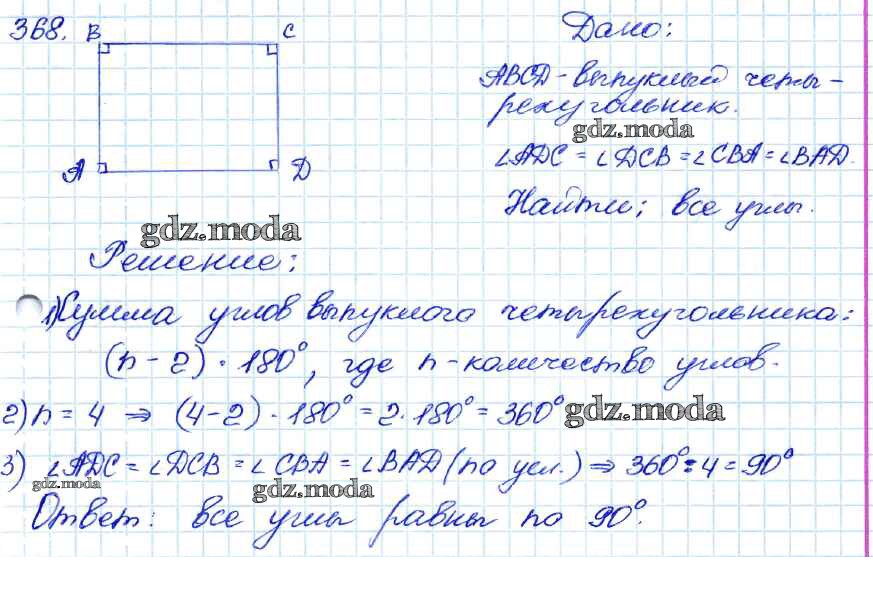 368. B C Дано:
ABCD - выпуклый четы-
рехугольник.
gdz.moda
∠ADC = ∠DCB = ∠CBA = ∠BAD.
A D
Найти; все углы.
gdz.moda
Решение:
1) Сумма углов выпуклого четырехугольника:
(n - 2) · 180°, где n - количество углов.
2) n = 4 ⇒ (4-2) · 180° = 2 · 180° = 360° gdz.moda
3) ∠ADC = ∠DCB = ∠CBA = ∠BAD (по усл.) ⇒ 360° : 4 = 90°
gdz.moda gdz.moda
Ответ: все углы равны по 90°.